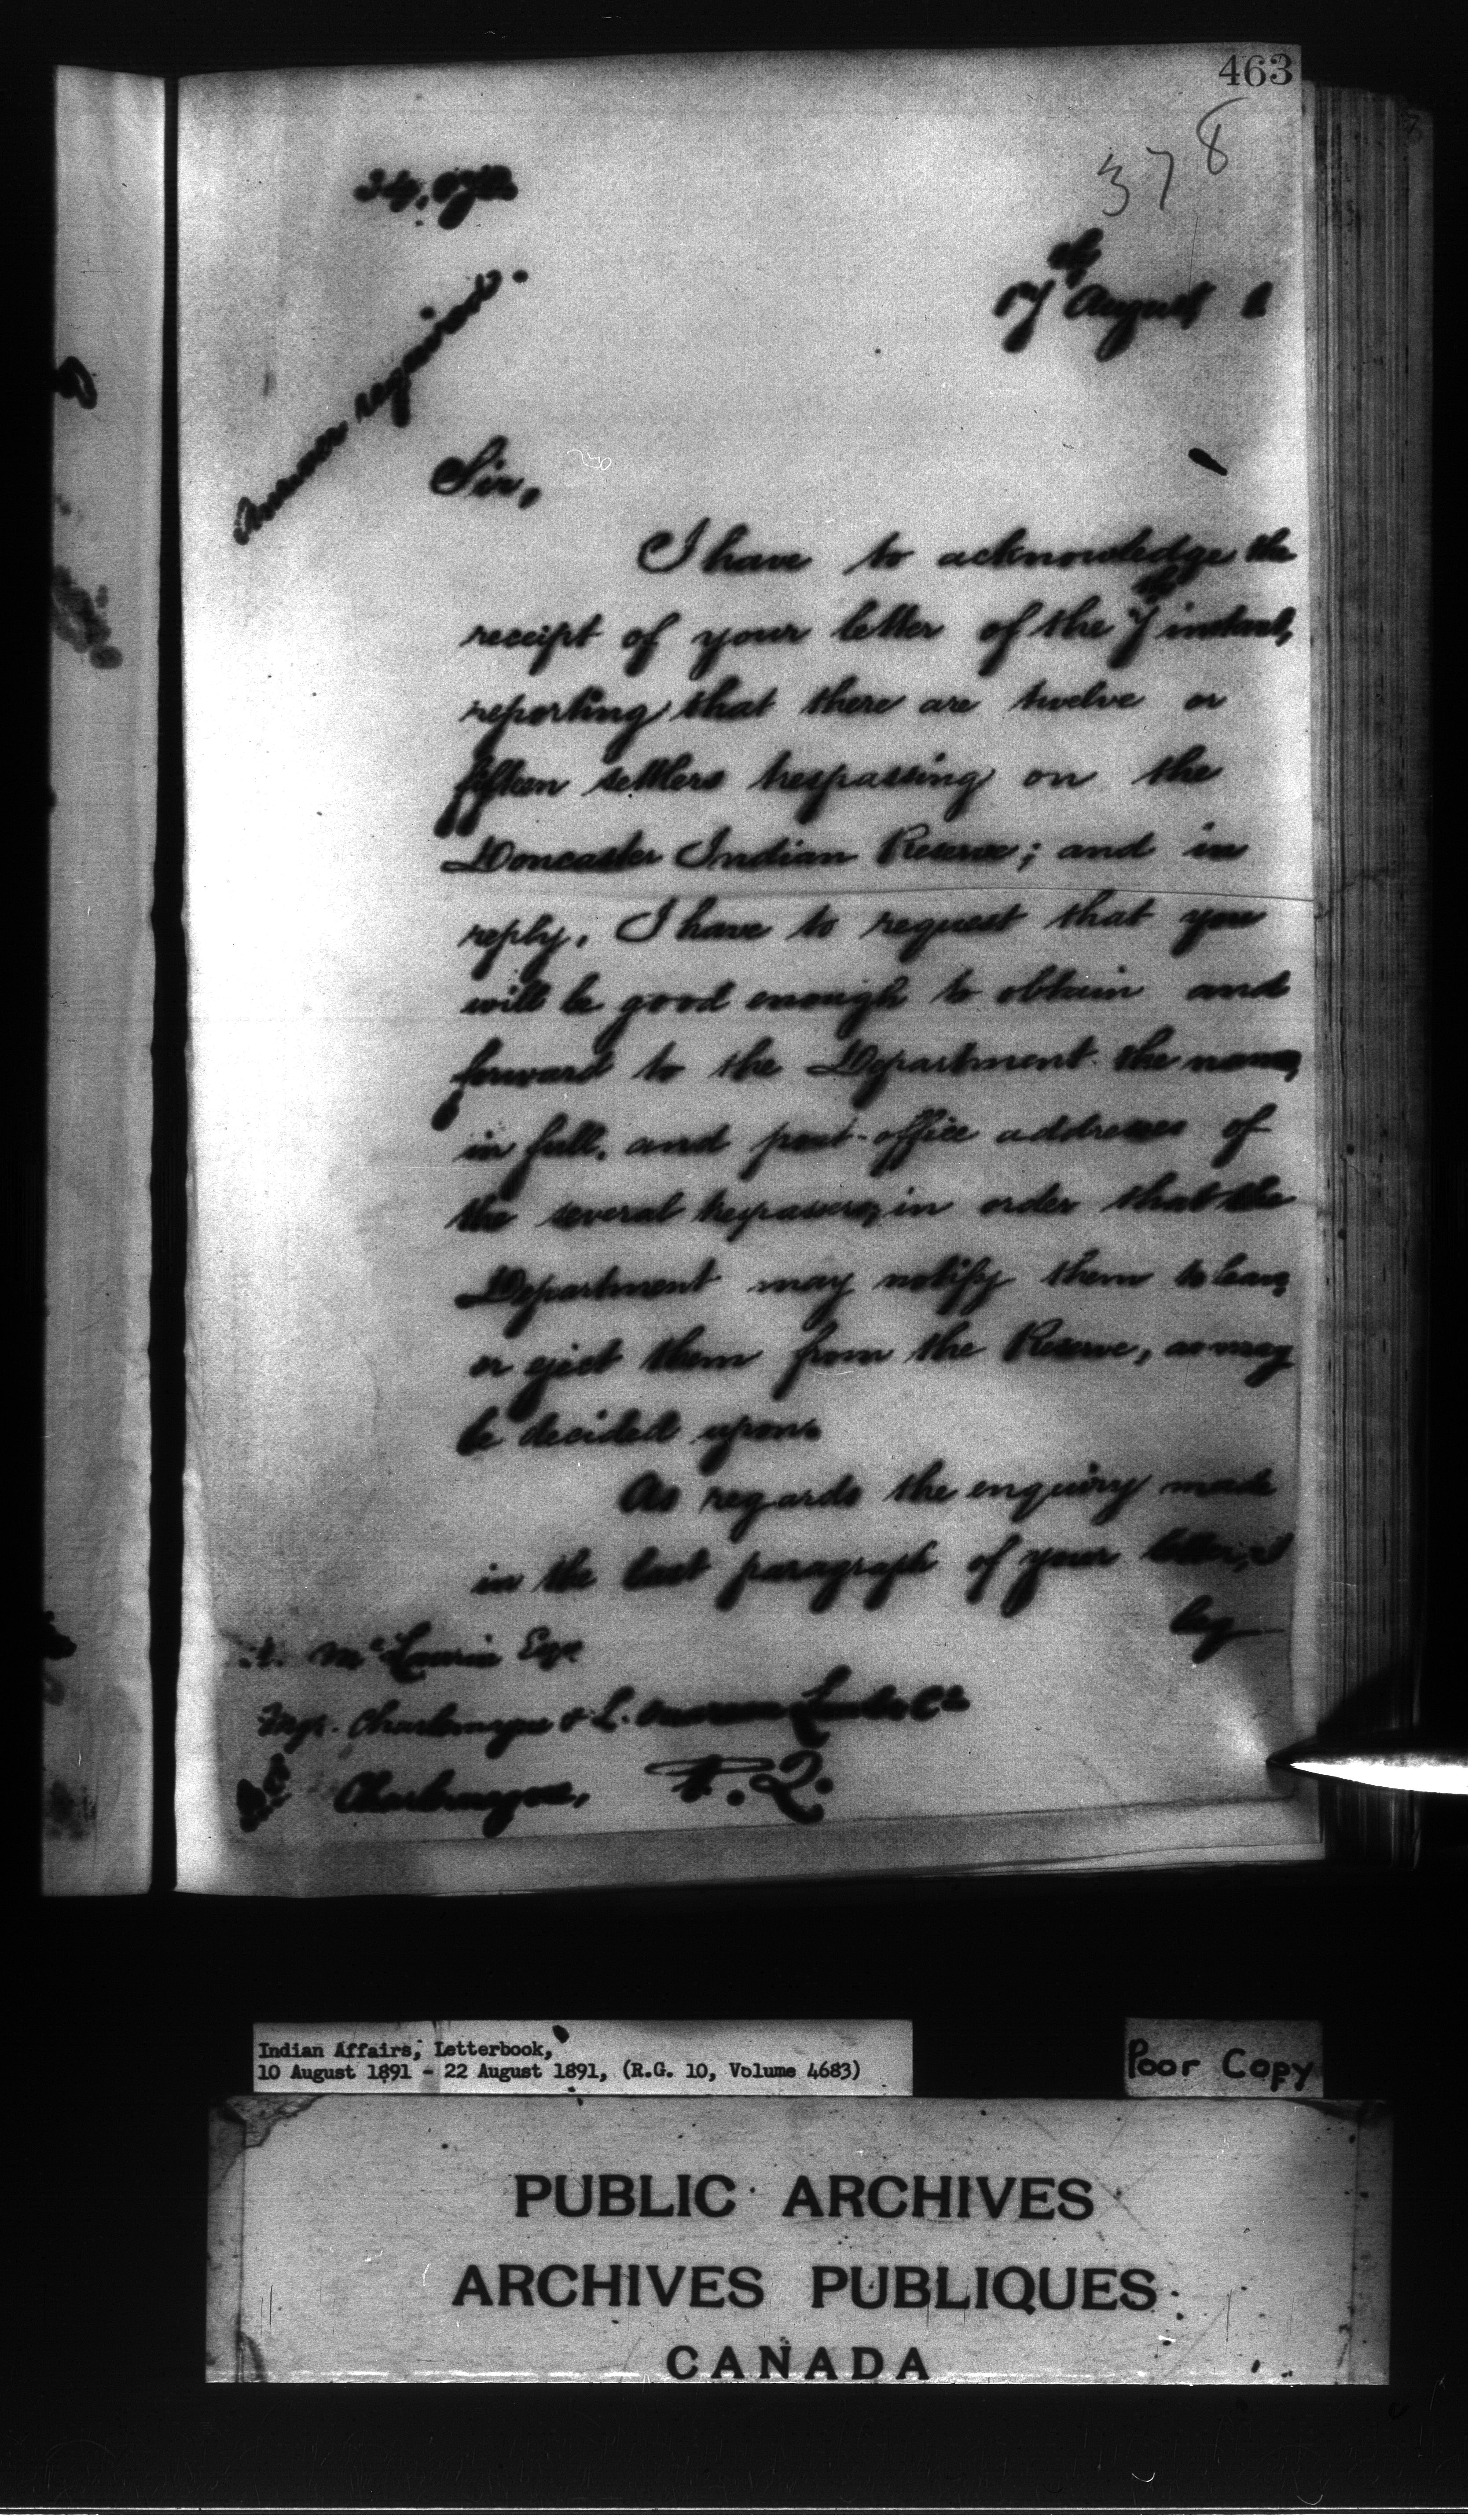 463
378
17th August 1
Answer required.
Sir,
I have to acknowledge the
receipt of your letter of the 7th instant,
reporting that there are twelve or
fifteen settlers trespassing on the
Doncaster Indian Reserve; and in
reply, I have to request that you
will be good enough to obtain and
forward to the Department the names,
in full, and post-office addresses of
the several trespassers, in order that the
Department may notify them to leave,
or eject them from the Reserve, as may
be decided upon.
As regards the enquiry made
in the last paragraph of your letter, I
beg
Mc Laurin Esqr
Mgr. Charlemagne & L. Lumber Co
Charlemagne, P.Q.
Indian Affairs, Letterbook,
10 August 1891 - 22 August 1891, (R.G. 10, Volume 4683)
Poor Copy
PUBLIC ARCHIVES
ARCHIVES PUBLIQUES
CANADA